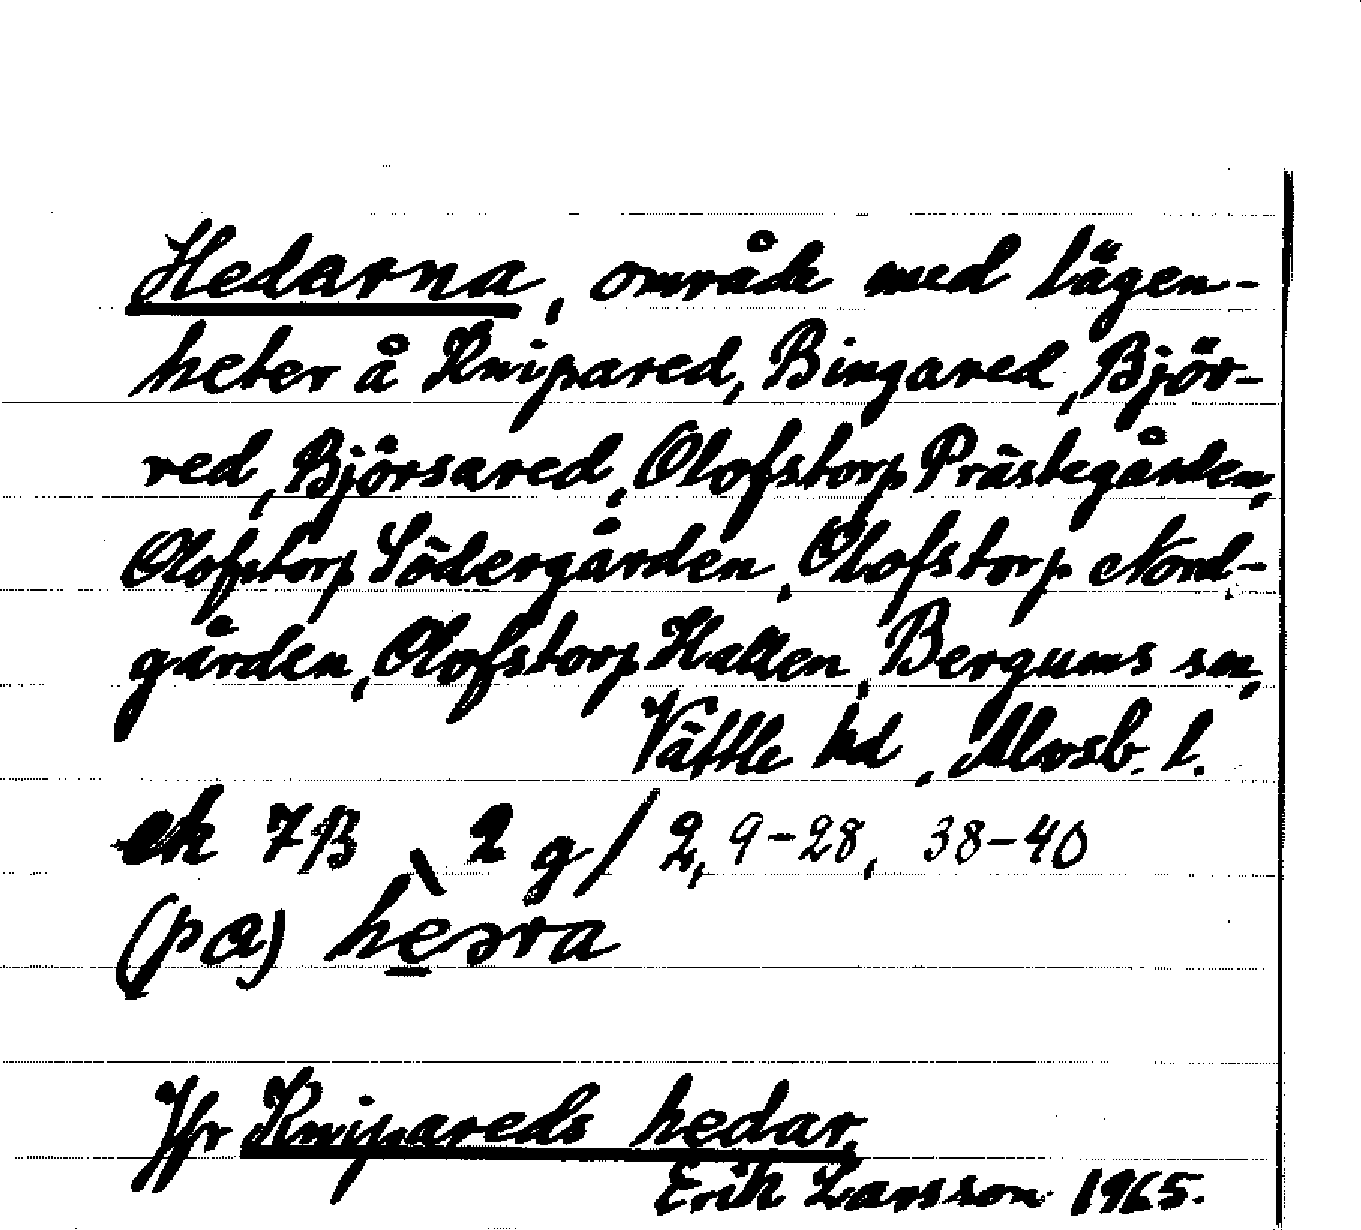 Hedarna, område med lägen-
heter å Knipared, Bingared, Björ-
red, Björsared, Olofstorp Prästegården,
Olofstorp Södergården, Olofstorp Nord-
gården, Olofstorp Hallen, Bergums sn,
Vättle hd, Älvsb. l.
ek 7B, 2 g/2, 9-28, 38-40
(pa) hèsra
Jfr Knipareds hedar.
Erik Larsson 1965.